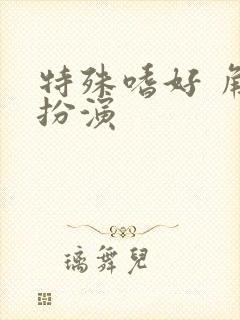 特殊嗜好 角
扮演
璃舞兒